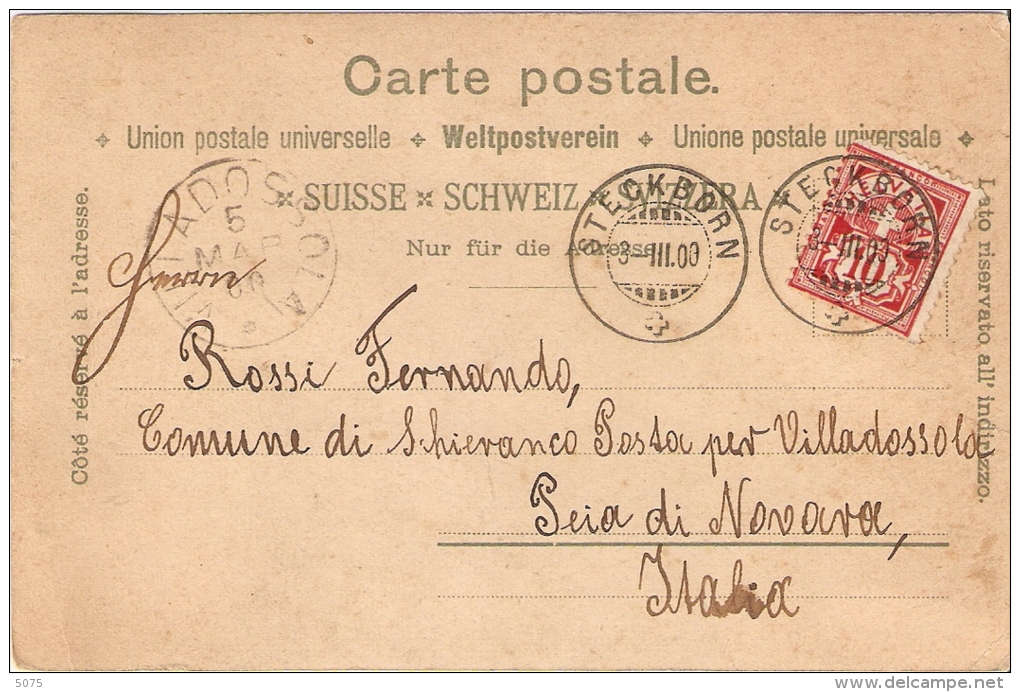 Carte postale.
Union postale universelle Weltpostverein Unione postale universale
SUISSE SCHWEIZ SVIZZERA
Nur für die Adresse
Côté réservé à l'adresse.
Lato riservato all' indirizzo.
VILLADOSSOLA
5
MAR
00
STECKBORN
3-III.00
STECKBORN
3-III.00
10
Herrn
Rossi Fernando,
Comune di Schieranco Posta per Villadossola
Pcia di Novara,
Italia
5075
www.delcampe.net